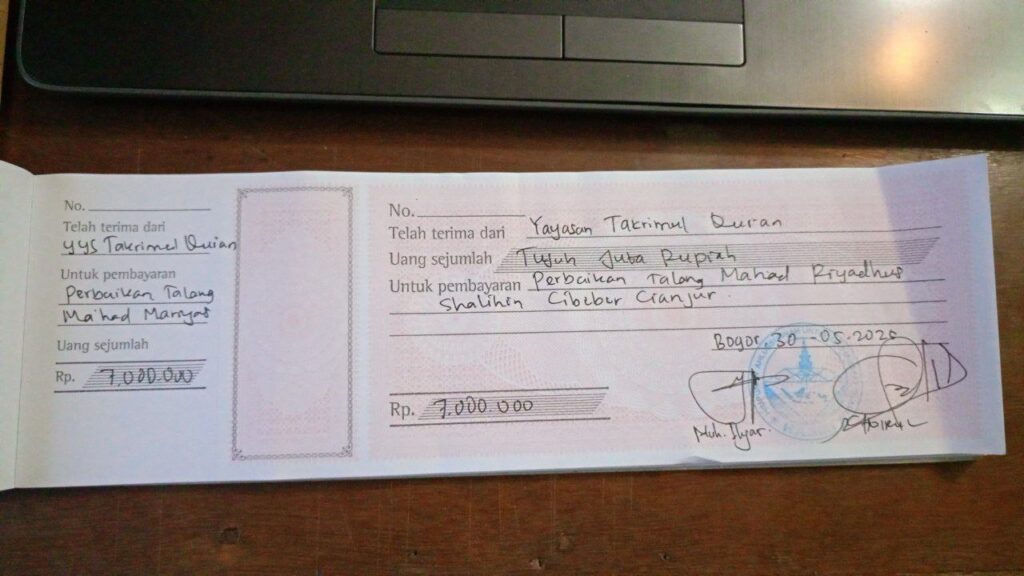 No.
Telah terima dari
YYS Takrimul Quran
Untuk pembayaran
Perbaikan Talang
Ma'had Marryas
Uang sejumlah
Rp. 7.000.000
No.
Telah terima dari Yayasan Takrimul Quran
Uang sejumlah Tujuh Juta Rupiah
Untuk pembayaran Perbaikan Talang Mahad Riyadhus
Shalihin Cibeber Cianjur.
Bogor, 30-05-2025
Rp. 7.000.000
Muh. Ilyas.